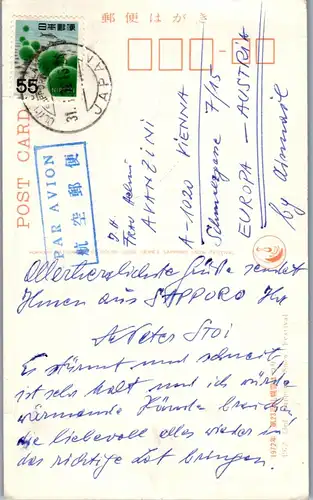 郵便はがき
日本郵便
55
NIPPON
JAPAN
31.
POST CARD
PAR AVION
航空郵便
Frau
AVANZINI
A-1020 VIENNA
7/15
EUROPA - AUSTRIA
by Airmail
Allerherzlichste Grüße sendet
Ihnen aus SAPPORO Ihr
Peter Stoi
Es stürmt und schneit,
ist sehr kalt und ich würde
wärmende Hände brauchen
die liebevoll alles wieder in
das richtige Lot bringen.